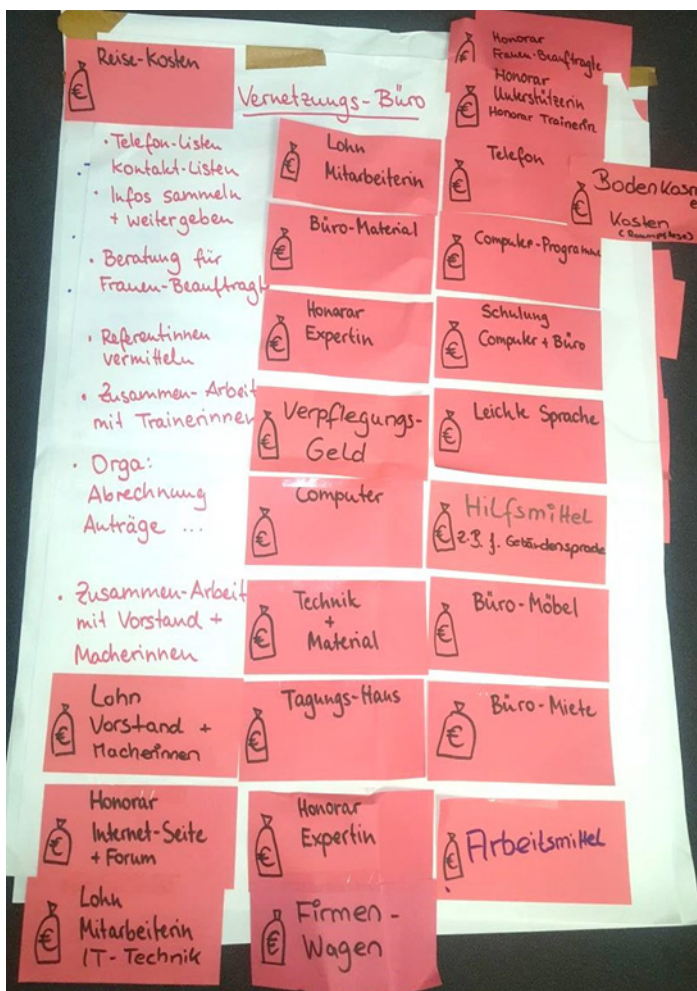 Reise-Kosten
Vernetzungs-Büro
• Telefon-Listen
Kontakt-Listen
• Infos sammeln
+ weitergeben
• Beratung für
Frauen-Beauftragte
• Referentinnen
vermitteln
• Zusammen-Arbeit
mit Trainerinnen
• Orga:
Abrechnung
Anträge ...
• Zusammen-Arbeit
mit Vorstand +
Macherinnen
Lohn
Vorstand +
Macherinnen
Honorar
Internet-Seite
+ Forum
Lohn
Mitarbeiterin
IT-Technik
Lohn
Mitarbeiterin
Büro-Material
Honorar
Expertin
Verpflegungs-
Geld
Computer
Technik
+
Material
Tagungs-Haus
Honorar
Expertin
Firmen-
Wagen
Honorar
Frauen-Beauftragte
Honorar
Unterstützerin
Honorar Trainerin
Telefon
Computer-Programme
Schulung
Computer + Büro
Leichte Sprache
Hilfsmittel
z.B. f. Gebärdensprache
Büro-Möbel
Büro-Miete
Arbeitsmittel
Kosten